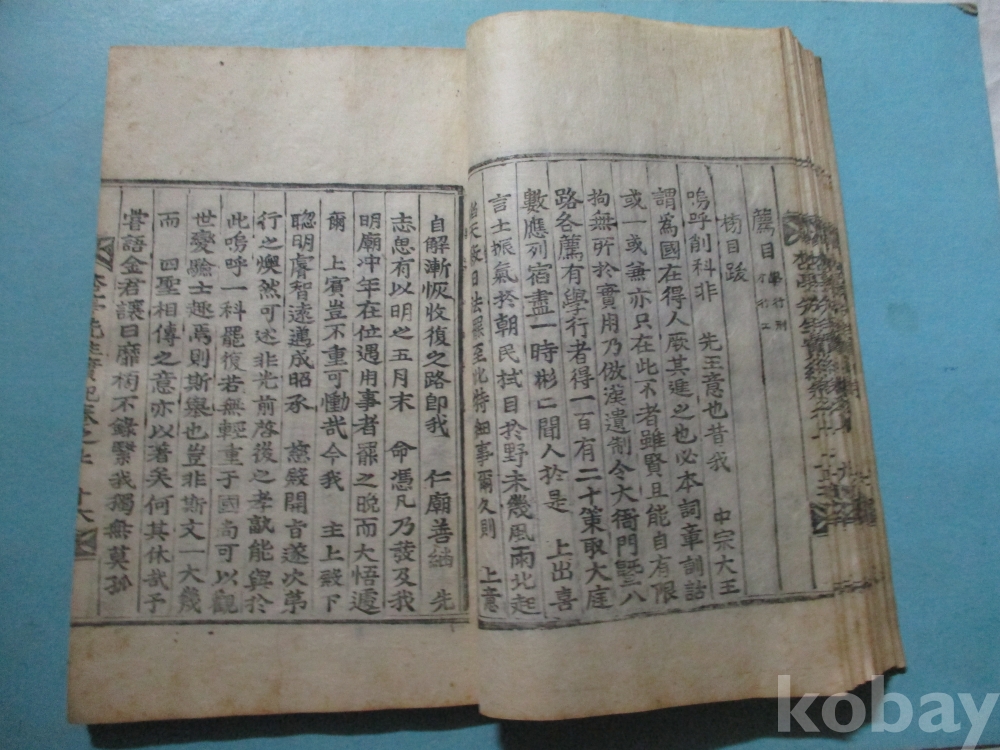 薦目
榜目跋
嗚呼削科非 先王意也昔我 中宗大王
謂為國在得人厥其進之也必本詞章訓詁
或一或兼亦只在此不者雖賢且能自有限
拘無所於實用乃倣漢遺制令大衙門曁八
路各薦有學行者得一百有二十策取大庭
數應列宿盡一時彬二聞人於是 上出喜
言士振氣於朝民拭目於野未幾風雨北起
天 日 法羅至此特細事爾久則 上意
自解漸恢收復之路卽我 仁廟善繼 先
志思有以明之五月末 命憑凡乃發及我
明廟冲年在位遇用事者罷之晚而大悟遽
爾 上賓豈不重可慟哉今我 主上殿下
聰明膚智遠邁成昭承 慈殿開旨遂次第
行之煥然可述非光前啓後之孝敢能與於
此嗚呼一科罷復若無輕重于國尙可以觀
世變驗士趣焉則斯擧也豈非斯文一大幾
而 四聖相傳之意亦以著矣何其休哉子
嘗語金君讓曰靡 不錄繫我獨無莫孤